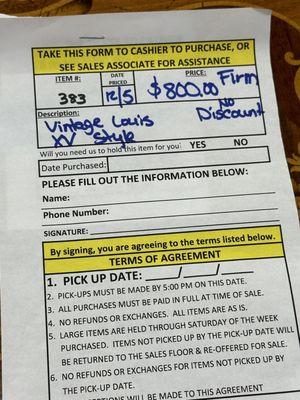 TAKE THIS FORM TO CASHIER TO PURCHASE, OR
SEE SALES ASSOCIATE FOR ASSISTANCE
ITEM #: DATE PRICED PRICE:
383 12/5 $800.00 Firm
Description: No Discount
Vintage Louis
XV Style
Will you need us to hold this item for you: YES NO
Date Purchased:
PLEASE FILL OUT THE INFORMATION BELOW:
Name:
Phone Number:
SIGNATURE:
By signing, you are agreeing to the terms listed below.
TERMS OF AGREEMENT
1. PICK UP DATE: ____/____/____
2. PICK-UPS MUST BE MADE BY 5:00 PM ON THIS DATE.
3. ALL PURCHASES MUST BE PAID IN FULL AT TIME OF SALE.
4. NO REFUNDS OR EXCHANGES. ALL ITEMS ARE AS IS.
5. LARGE ITEMS ARE HELD THROUGH SATURDAY OF THE WEEK
PURCHASED. ITEMS NOT PICKED UP BY THE PICK-UP DATE WILL
BE RETURNED TO THE SALES FLOOR & RE-OFFERED FOR SALE.
6. NO REFUNDS OR EXCHANGES FOR ITEMS NOT PICKED UP BY
THE PICK-UP DATE.
WILL BE MADE TO THIS AGREEMENT